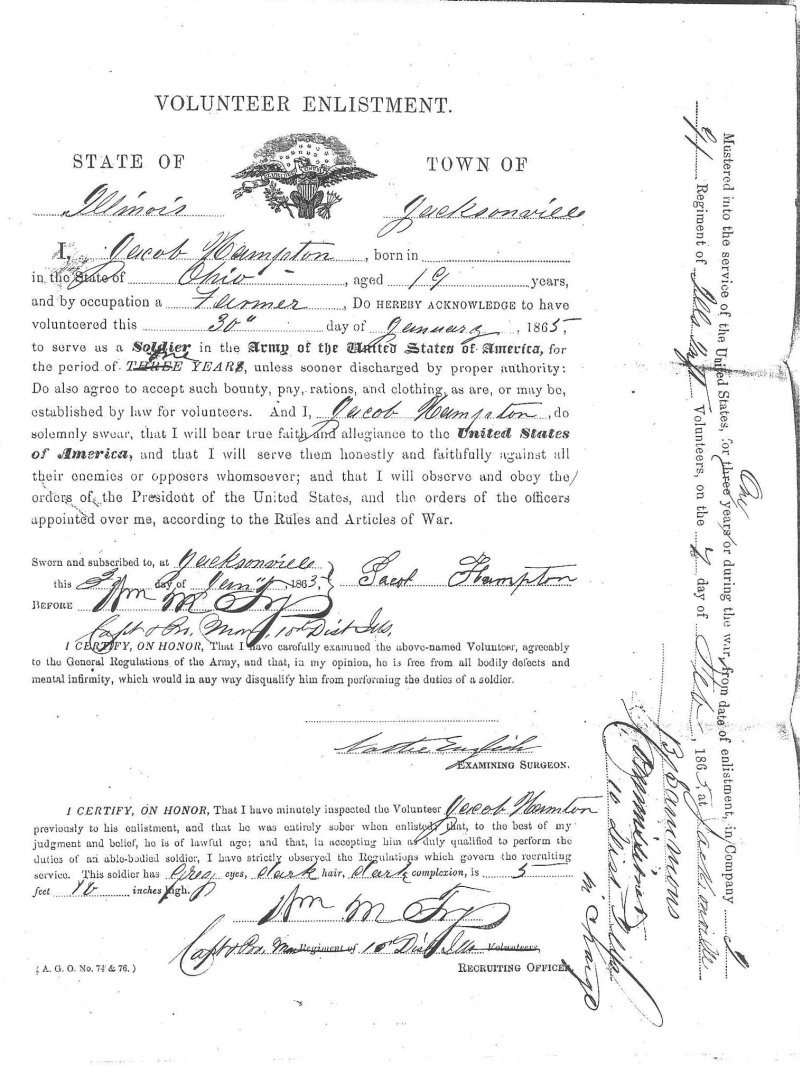 VOLUNTEER ENLISTMENT.
STATE OF TOWN OF
Illinois Jacksonville
I, Jacob Hampton, born in
in the State of Ohio, aged 19 years,
and by occupation a Farmer, DO HEREBY ACKNOWLEDGE to have
volunteered this 30" day of January, 1865,
to serve as a Soldier in the Army of the United States of America, for
one
the period of THREE YEARS, unless sooner discharged by proper authority:
Do also agree to accept such bounty, pay, rations, and clothing, as are, or may be,
established by law for volunteers. And I, Jacob Hampton, do
solemnly swear, that I will bear true faith and allegiance to the United States
of America, and that I will serve them honestly and faithfully against all
their enemies or opposers whomsoever; and that I will observe and obey the
orders of the President of the United States, and the orders of the officers
appointed over me, according to the Rules and Articles of War.
Sworn and subscribed to, at Jacksonville
this day of Jan'y 1865
Jacob Hampton
BEFORE Wm M Fry
Capt & Pro. Mar. 10th Dist Ills.
I CERTIFY, ON HONOR, That I have carefully examined the above-named Volunteer, agreeably
to the General Regulations of the Army, and that, in my opinion, he is free from all bodily defects and
mental infirmity, which would in any way disqualify him from performing the duties of a soldier.
English
EXAMINING SURGEON.
I CERTIFY, ON HONOR, That I have minutely inspected the Volunteer Jacob Hamton
previously to his enlistment, and that he was entirely sober when enlisted; that, to the best of my
judgment and belief, he is of lawful age; and that, in accepting him as duly qualified to perform the
duties of an able-bodied soldier, I have strictly observed the Regulations which govern the recruiting
service. This soldier has Grey eyes, dark hair, dark complexion, is 5
feet 10 inches high.
Wm M Fry
Capt & Pro. Mar Regiment of 10th Dist Ills Volunteers
RECRUITING OFFICER.
( A. G. O. No. 74 & 76. )
Mustered into the service of the United States, for three years, or during the war, from date of enlistment, in Company I
One
91 Regiment of Ills Volunteers, on the day of Feb, 1865, at Jacksonville
Commissioner
10 Dist Ills
in charge